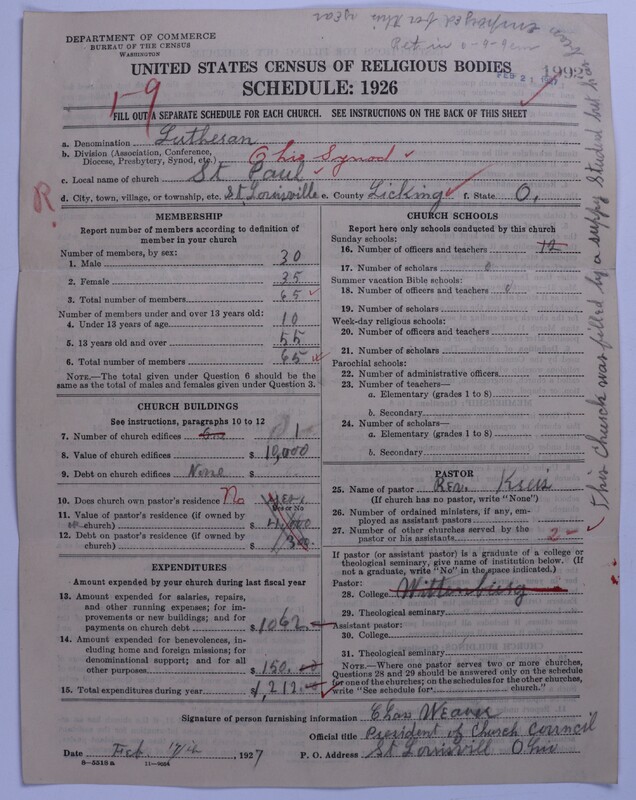 DEPARTMENT OF COMMERCE
BUREAU OF THE CENSUS
WASHINGTON
employed for this year
Ret in
FEB 21 1927
1992
UNITED STATES CENSUS OF RELIGIOUS BODIES
SCHEDULE: 1926
1-9
FILL OUT A SEPARATE SCHEDULE FOR EACH CHURCH. SEE INSTRUCTIONS ON THE BACK OF THIS SHEET
a. Denomination Lutheran
b. Division (Association, Conference, Diocese, Presbytery, Synod, etc.) Ohio Synod
c. Local name of church St Paul
R
d. City, town, village, or township, etc. St Louisville e. County Licking f. State O.
MEMBERSHIP
Report number of members according to definition of member in your church
Number of members, by sex:
1. Male 30
2. Female 35
3. Total number of members 65
Number of members under and over 13 years old:
4. Under 13 years of age 10
5. 13 years old and over 55
6. Total number of members 65
NOTE.—The total given under Question 6 should be the same as the total of males and females given under Question 3.
CHURCH BUILDINGS
See instructions, paragraphs 10 to 12
7. Number of church edifices 1
8. Value of church edifices $ 10,000
9. Debt on church edifices None $
10. Does church own pastor's residence No
Yes or No
11. Value of pastor's residence (if owned by church) $
12. Debt on pastor's residence (if owned by church) $
EXPENDITURES
Amount expended by your church during last fiscal year
13. Amount expended for salaries, repairs, and other running expenses; for improvements or new buildings; and for payments on church debt $ 1062
14. Amount expended for benevolences, including home and foreign missions; for denominational support; and for all other purposes $ 150.00
15. Total expenditures during year $ 1,212.00
CHURCH SCHOOLS
Report here only schools conducted by this church
Sunday schools:
16. Number of officers and teachers 12
17. Number of scholars 0
Summer vacation Bible schools:
18. Number of officers and teachers 0
19. Number of scholars
Week-day religious schools:
20. Number of officers and teachers
21. Number of scholars
Parochial schools:
22. Number of administrative officers
23. Number of teachers—
a. Elementary (grades 1 to 8)
b. Secondary
24. Number of scholars—
a. Elementary (grades 1 to 8)
b. Secondary
PASTOR
25. Name of pastor Rev. Kreis
(If church has no pastor, write "None")
26. Number of ordained ministers, if any, employed as assistant pastors
27. Number of other churches served by the pastor or his assistants 2
If pastor (or assistant pastor) is a graduate of a college or theological seminary, give name of institution below. (If not a graduate, write "No" in the space indicated.)
Pastor:
28. College Wittenburg
29. Theological seminary
Assistant pastor:
30. College
31. Theological seminary
NOTE.—Where one pastor serves two or more churches, Questions 28 and 29 should be answered only on the schedule for one of the churches; on the schedules for the other churches, write "See schedule for church."
This church was filled by a supply student but has been
Signature of person furnishing information Chas Weaver
Official title President of Church Council
Date Feb. 17th, 1927
P. O. Address St Louisvill Ohio
8—5518a 11—9054